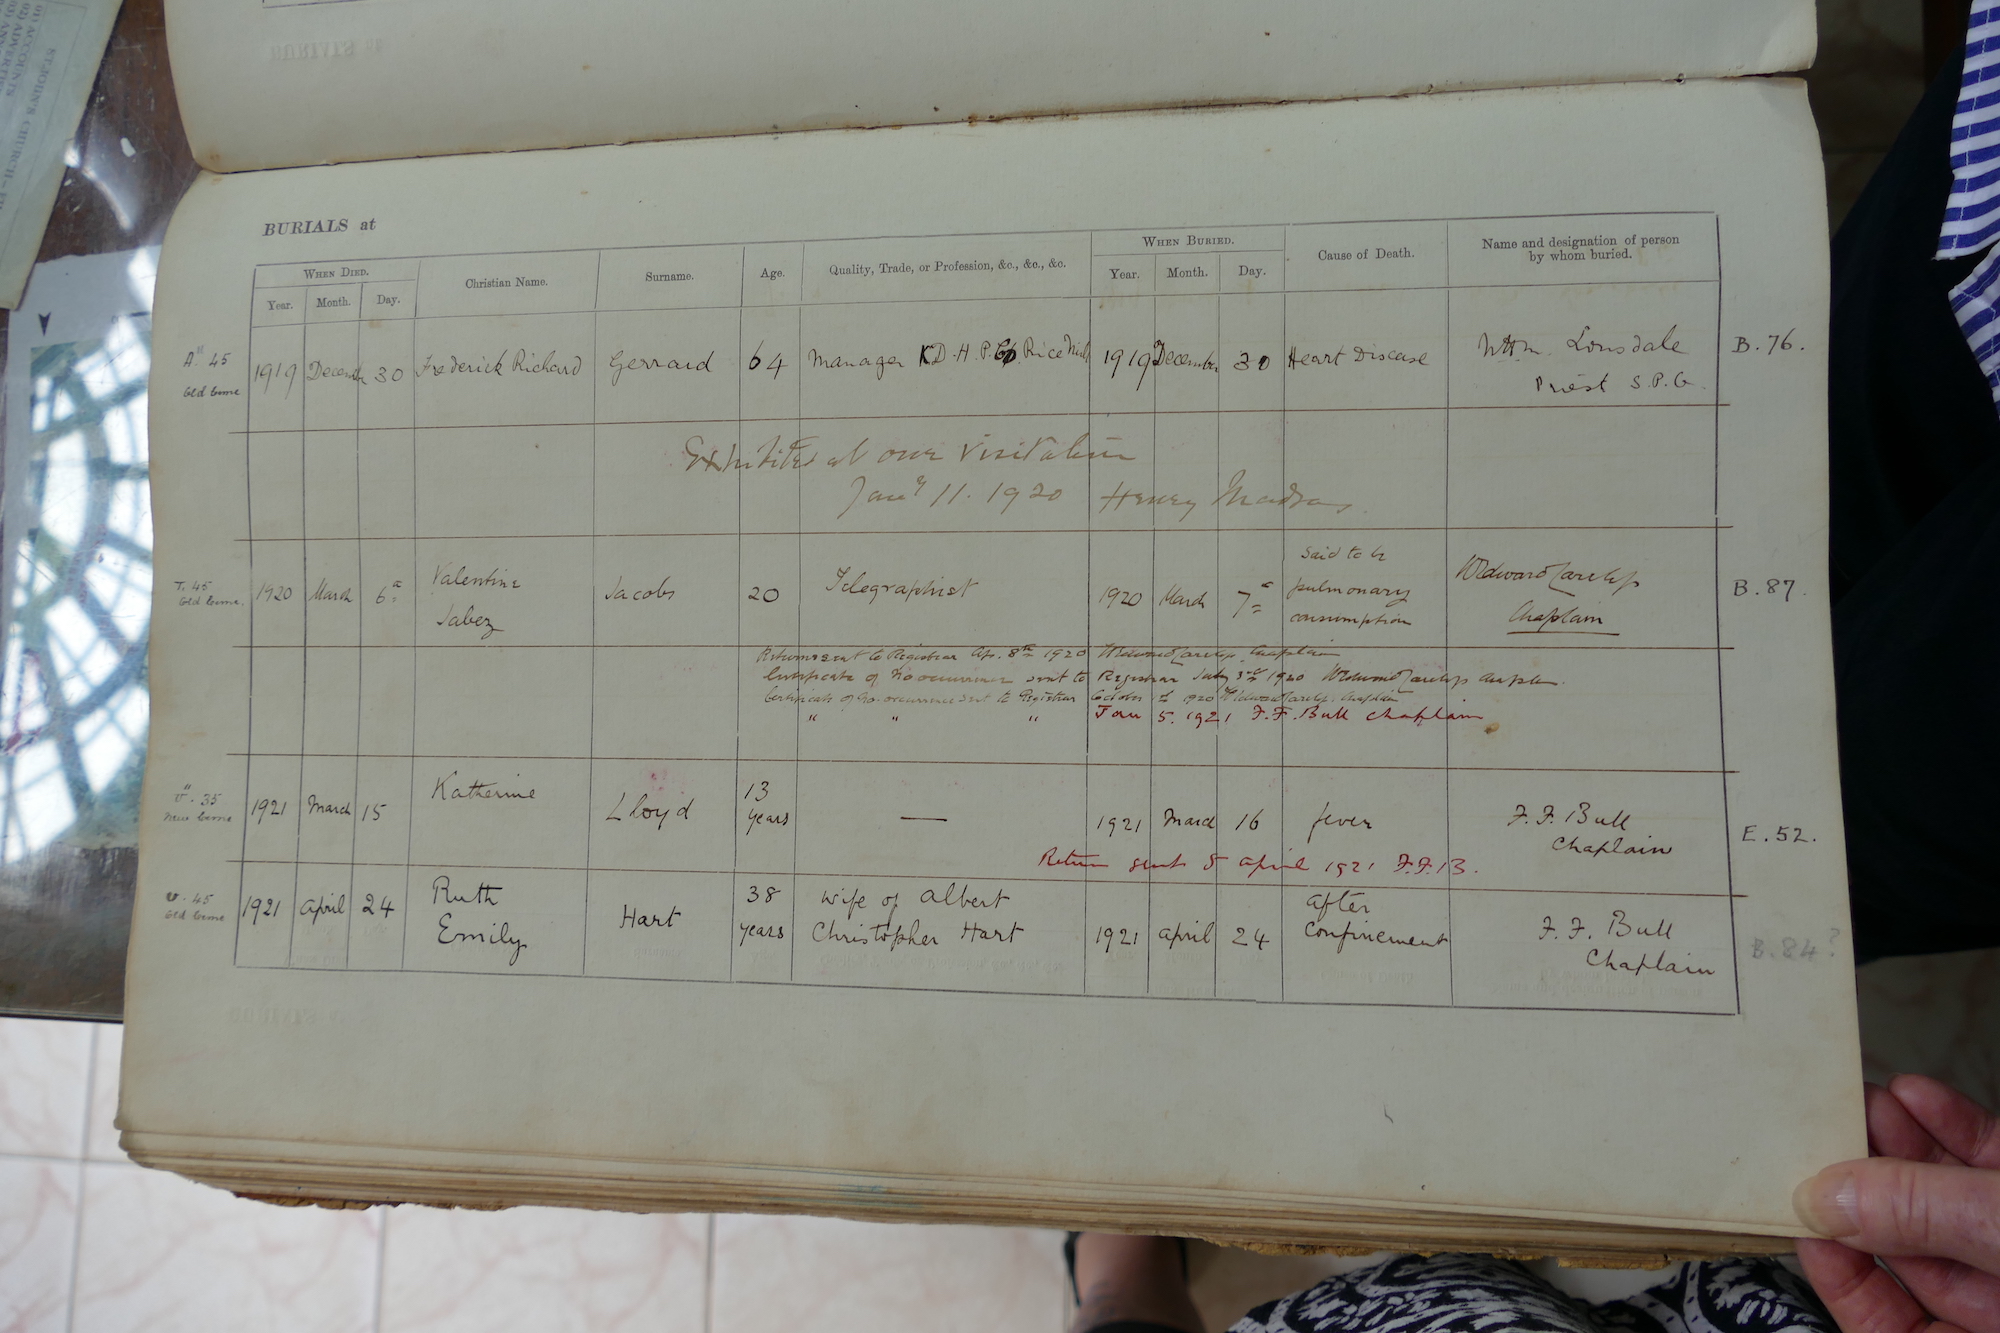 ST. JOHN'S CHURCH
01) ACCOUNTS
BURIALS at
When Died.
Year. Month. Day.
Christian Name.
Surname.
Age.
Quality, Trade, or Profession, &c., &c., &c.
When Buried.
Year. Month. Day.
Cause of Death.
Name and designation of person
by whom buried.
45
Old Ceme
1919 December 30 Frederick Richard Gerrard 64 Manager K.D.H.P. Co Rice Mill 1919 December 30 Heart Disease Wm. Lonsdale
Priest S.P.G.
B. 76.
Exhibited at our Visitation
Jany 11. 1920 Henry Madras
T. 45
Old Ceme.
1920 March 6th Valentine
Jabez
Jacobs 20 Telegraphist 1920 March 7th
said to be
pulmonary
consumption
Chaplain
B. 87.
Return sent to Registrar Ap. 8th 1920 Chaplain
Certificate of No occurrence sent to Registrar July 3rd 1920
Certificate of No occurrence sent to Registrar October 1920 Chaplain
" " " Jan 5. 1921 F. F. Bull Chaplain
35
New Ceme
1921 March 15 Katherine Lloyd 13
years
— 1921 March 16 fever F. F. Bull
Chaplain
E. 52.
Return sent 5 April 1921 F.F.B.
v. 45
Old Ceme
1921 April 24 Ruth
Emily
Hart 38
years
wife of Albert
Christopher Hart
1921 April 24 after
confinement
F. F. Bull
Chaplain
B. 84?